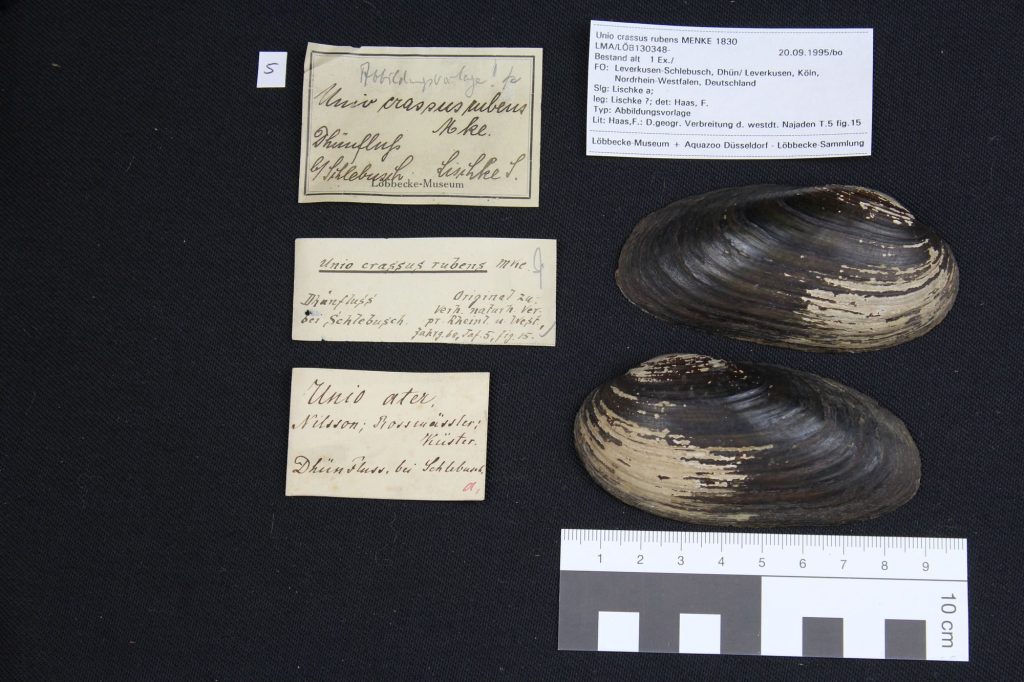 5
Abbildungsvorlage!
Unio crassus rubens
Mke.
Dhünfluß
b/Schlebusch. Lischke S.
Löbbecke-Museum
Unio crassus rubens MENKE 1830
LMA/LÖB130348- 20.09.1995/bo
Bestand alt 1 Ex./
FO: Leverkusen-Schlebusch, Dhün/ Leverkusen, Köln,
Nordrhein-Westfalen, Deutschland
Slg: Lischke a;
leg: Lischke ?; det: Haas, F.
Typ: Abbildungsvorlage
Lit: Haas,F.: D.geogr. Verbreitung d. westdt. Najaden T.5 fig.15
Löbbecke-Museum + Aquazoo Düsseldorf - Löbbecke-Sammlung
Unio crassus rubens Mke
Dhünfluss Original zu:
bei Schlebusch. Verh. naturh. Ver.
pr. Rheinl. u. West.
Jahrg. 60, Taf. 5, fig. 15.
Unio ater,
Nilsson; Rossmässler;
Küster.
Dhün Fluss, bei Schlebusch,
a,
1 2 3 4 5 6 7 8 9
10 cm